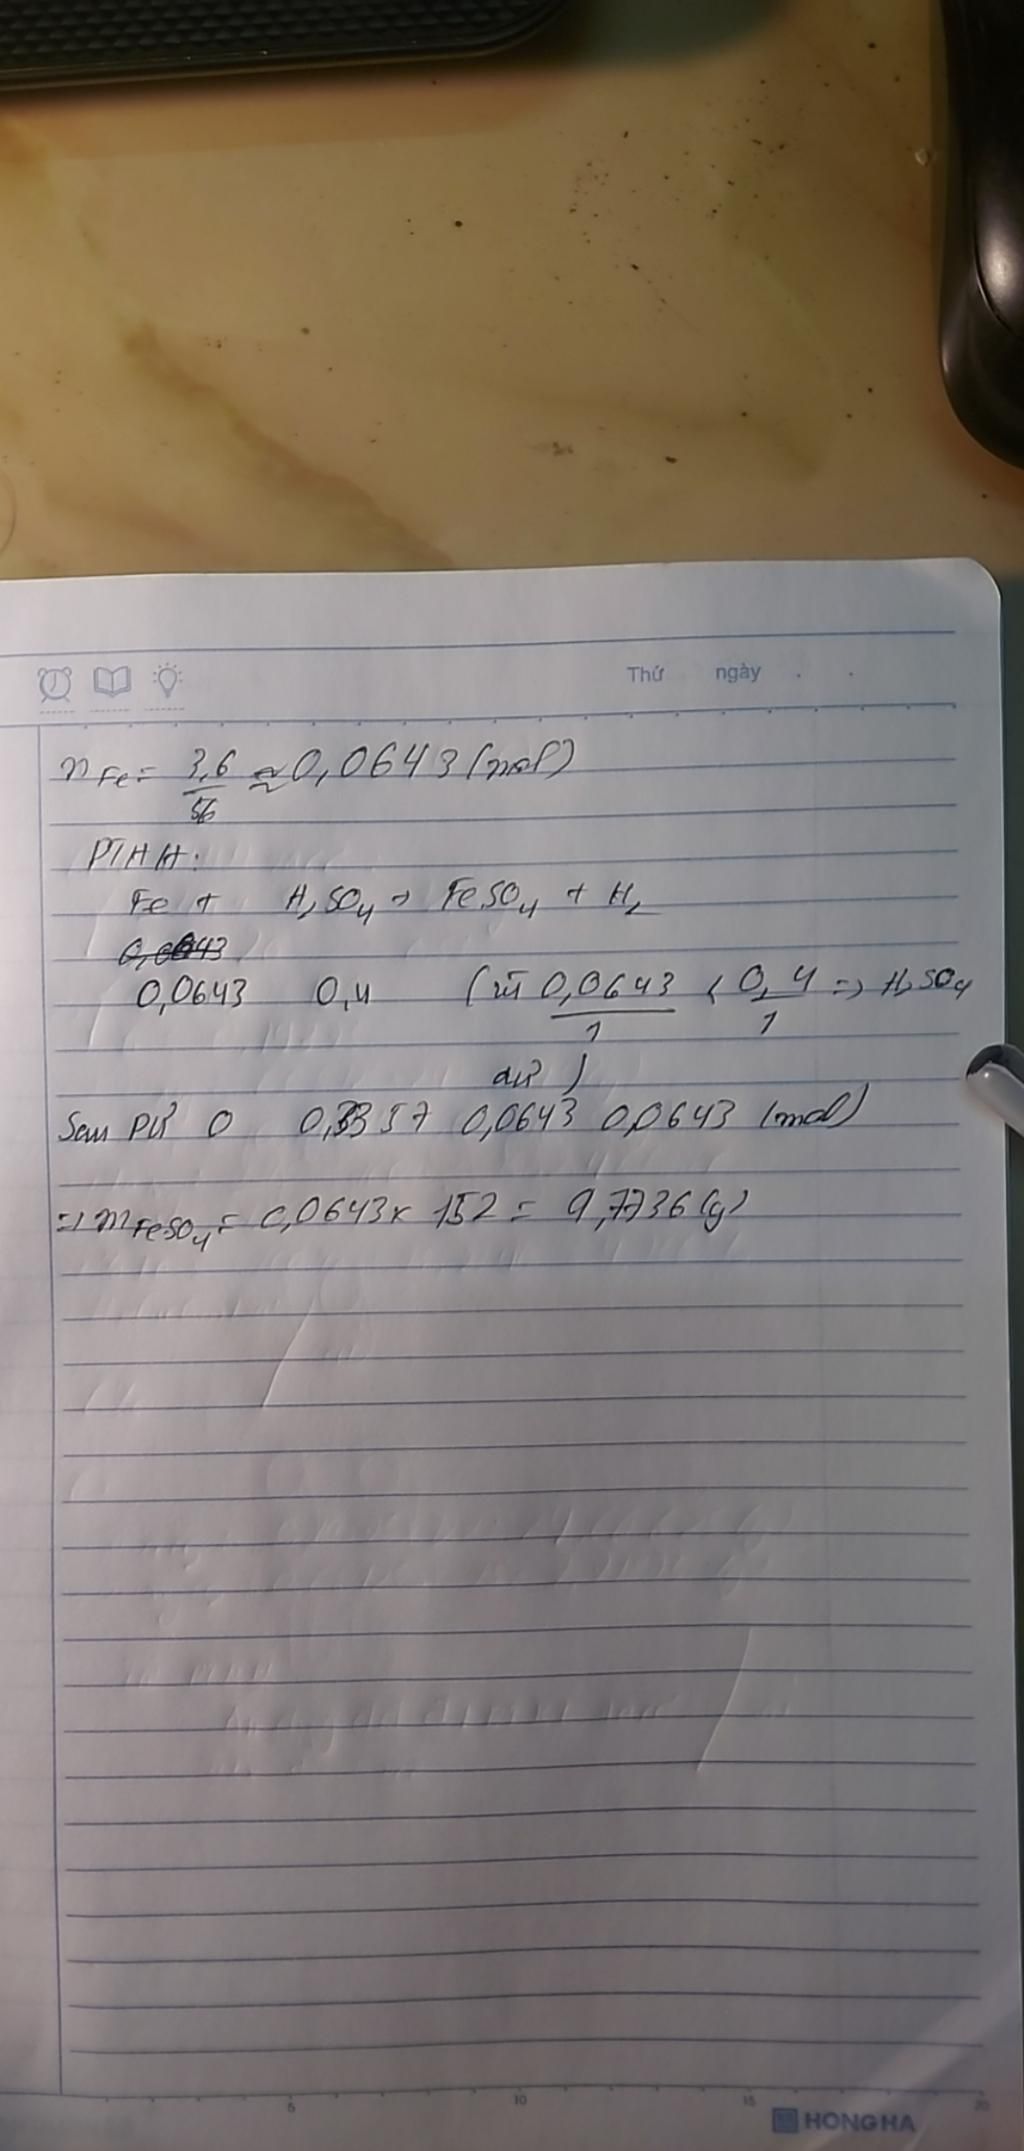 Thứ ngày . .
n Fe = 3,6/56 ≈ 0,0643 (mol)
PTHH:
Fe + H₂SO₄ → FeSO₄ + H₂
0,0643
0,0643 0,4 (vì 0,0643/1 < 0,4/1 => H₂SO₄
dư)
Sau PƯ 0 0,3357 0,0643 0,0643 (mol)
=> m FeSO₄ = 0,0643 x 152 = 9,7736 (g)
5 10 15 20
HONG HA